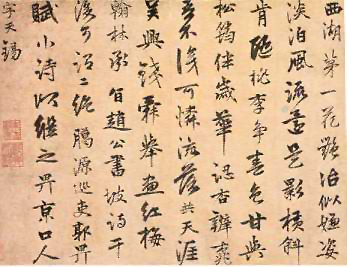 西湖第一花艷冶似
淡泊風流意是影橫斜
肯隨桃李爭春色甘與
松筠伴歲華認杏辨桃
不淺可憐流落共天涯
吳興錢舜舉畫紅梅
翰林承旨趙公書坡詩于
後可謂二絕騰源巡吏郭畀
賦小詩以繼之畀京口人
字天錫